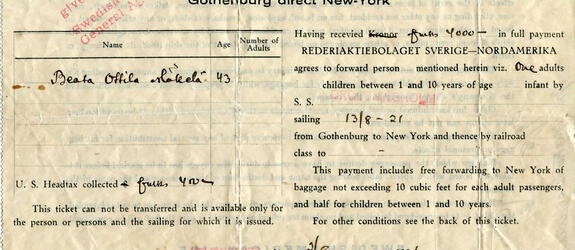 Gothenburg direct New-York
give
Swedish
General Ag
Name Age Number of Adults
Beata Ottila 43
U. S. Headtax collected
This ticket can not be transferred and is available only for
the person or persons and the sailing for which it is issued.
Having recevied Kronor fmks 4000- in full payment
REDERIAKTIEBOLAGET SVERIGE—NORDAMERIKA
agrees to forward person mentioned herein viz. One adults
children between 1 and 10 years of age infant by
S. S.
sailing 13/8 - 21
from Gothenburg to New York and thence by railroad
class to -
This payment includes free forwarding to New York of
baggage not exceeding 10 cubic feet for each adult passengers,
and half for children between 1 and 10 years.
For other conditions see the back of this ticket.